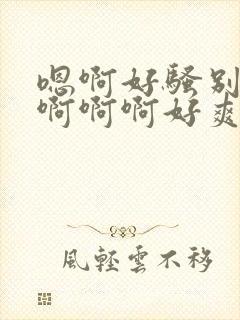 嗯啊好骚别
啊啊啊好爽
風輕雲不移